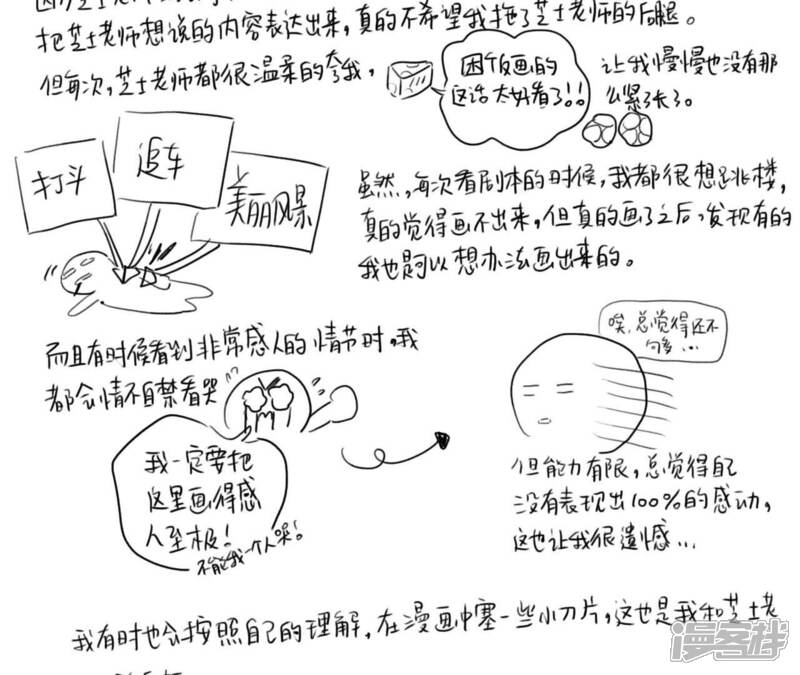 把芝士老师想说的内容表达出来,真的不希望我拖了芝士老师的后腿。
但每次,芝士老师都很温柔的夸我,
困饭画的
这话太好看了!!
让我慢慢也没有那
么紧张了。
打斗
追车
美丽风景
虽然,每次看剧本的时候,我都很想跳楼,
真的觉得画不出来,但真的画了之后,发现有的
我也是可以想办法画出来的。
而且有时候看到非常感人的情节时,我
都会情不自禁看哭
我一定要把
这里画得感
人至极!
不能我一个人哭!
唉,总觉得还不
够...
但能力有限,总觉得自己
没有表现出100%的感动,
这也让我很遗憾...
我有时也会按照自己的理解,在漫画中塞一些小刀片,这也是我和芝士老
漫客栈